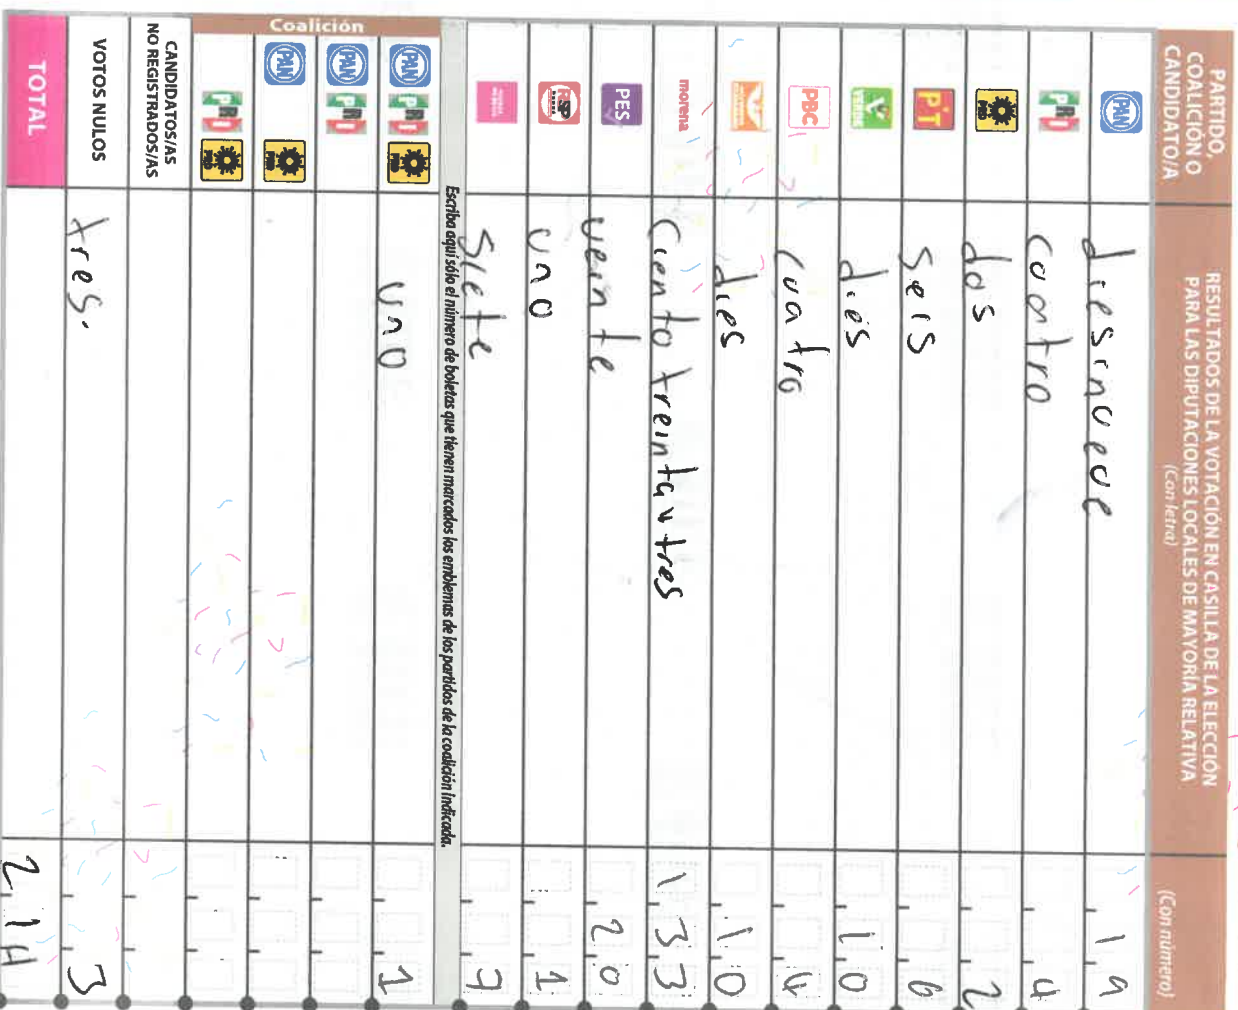 PARTIDO, COALICIÓN O CANDIDATO/A
RESULTADOS DE LA VOTACIÓN EN CASILLA DE LA ELECCIÓN PARA LAS DIPUTACIONES LOCALES DE MAYORÍA RELATIVA (Con letra)
(Con número)
PAN diesinueve 19
PRI cuatro 4
PRD dos 2
PT seis 6
VERDE dies 10
PBC cuatro 4
dies 10
morena Ciento treinta y tres 133
PES veinte 20
RSP uno 1
siete 7
Escriba aquí sólo el número de boletas que tienen marcados los emblemas de los partidos de la coalición indicada.
Coalición
PAN PRI PRD uno 1
PAN PRI
PAN PRD
PRI PRD
CANDIDATOS/AS NO REGISTRADOS/AS
VOTOS NULOS tres. 3
TOTAL 214